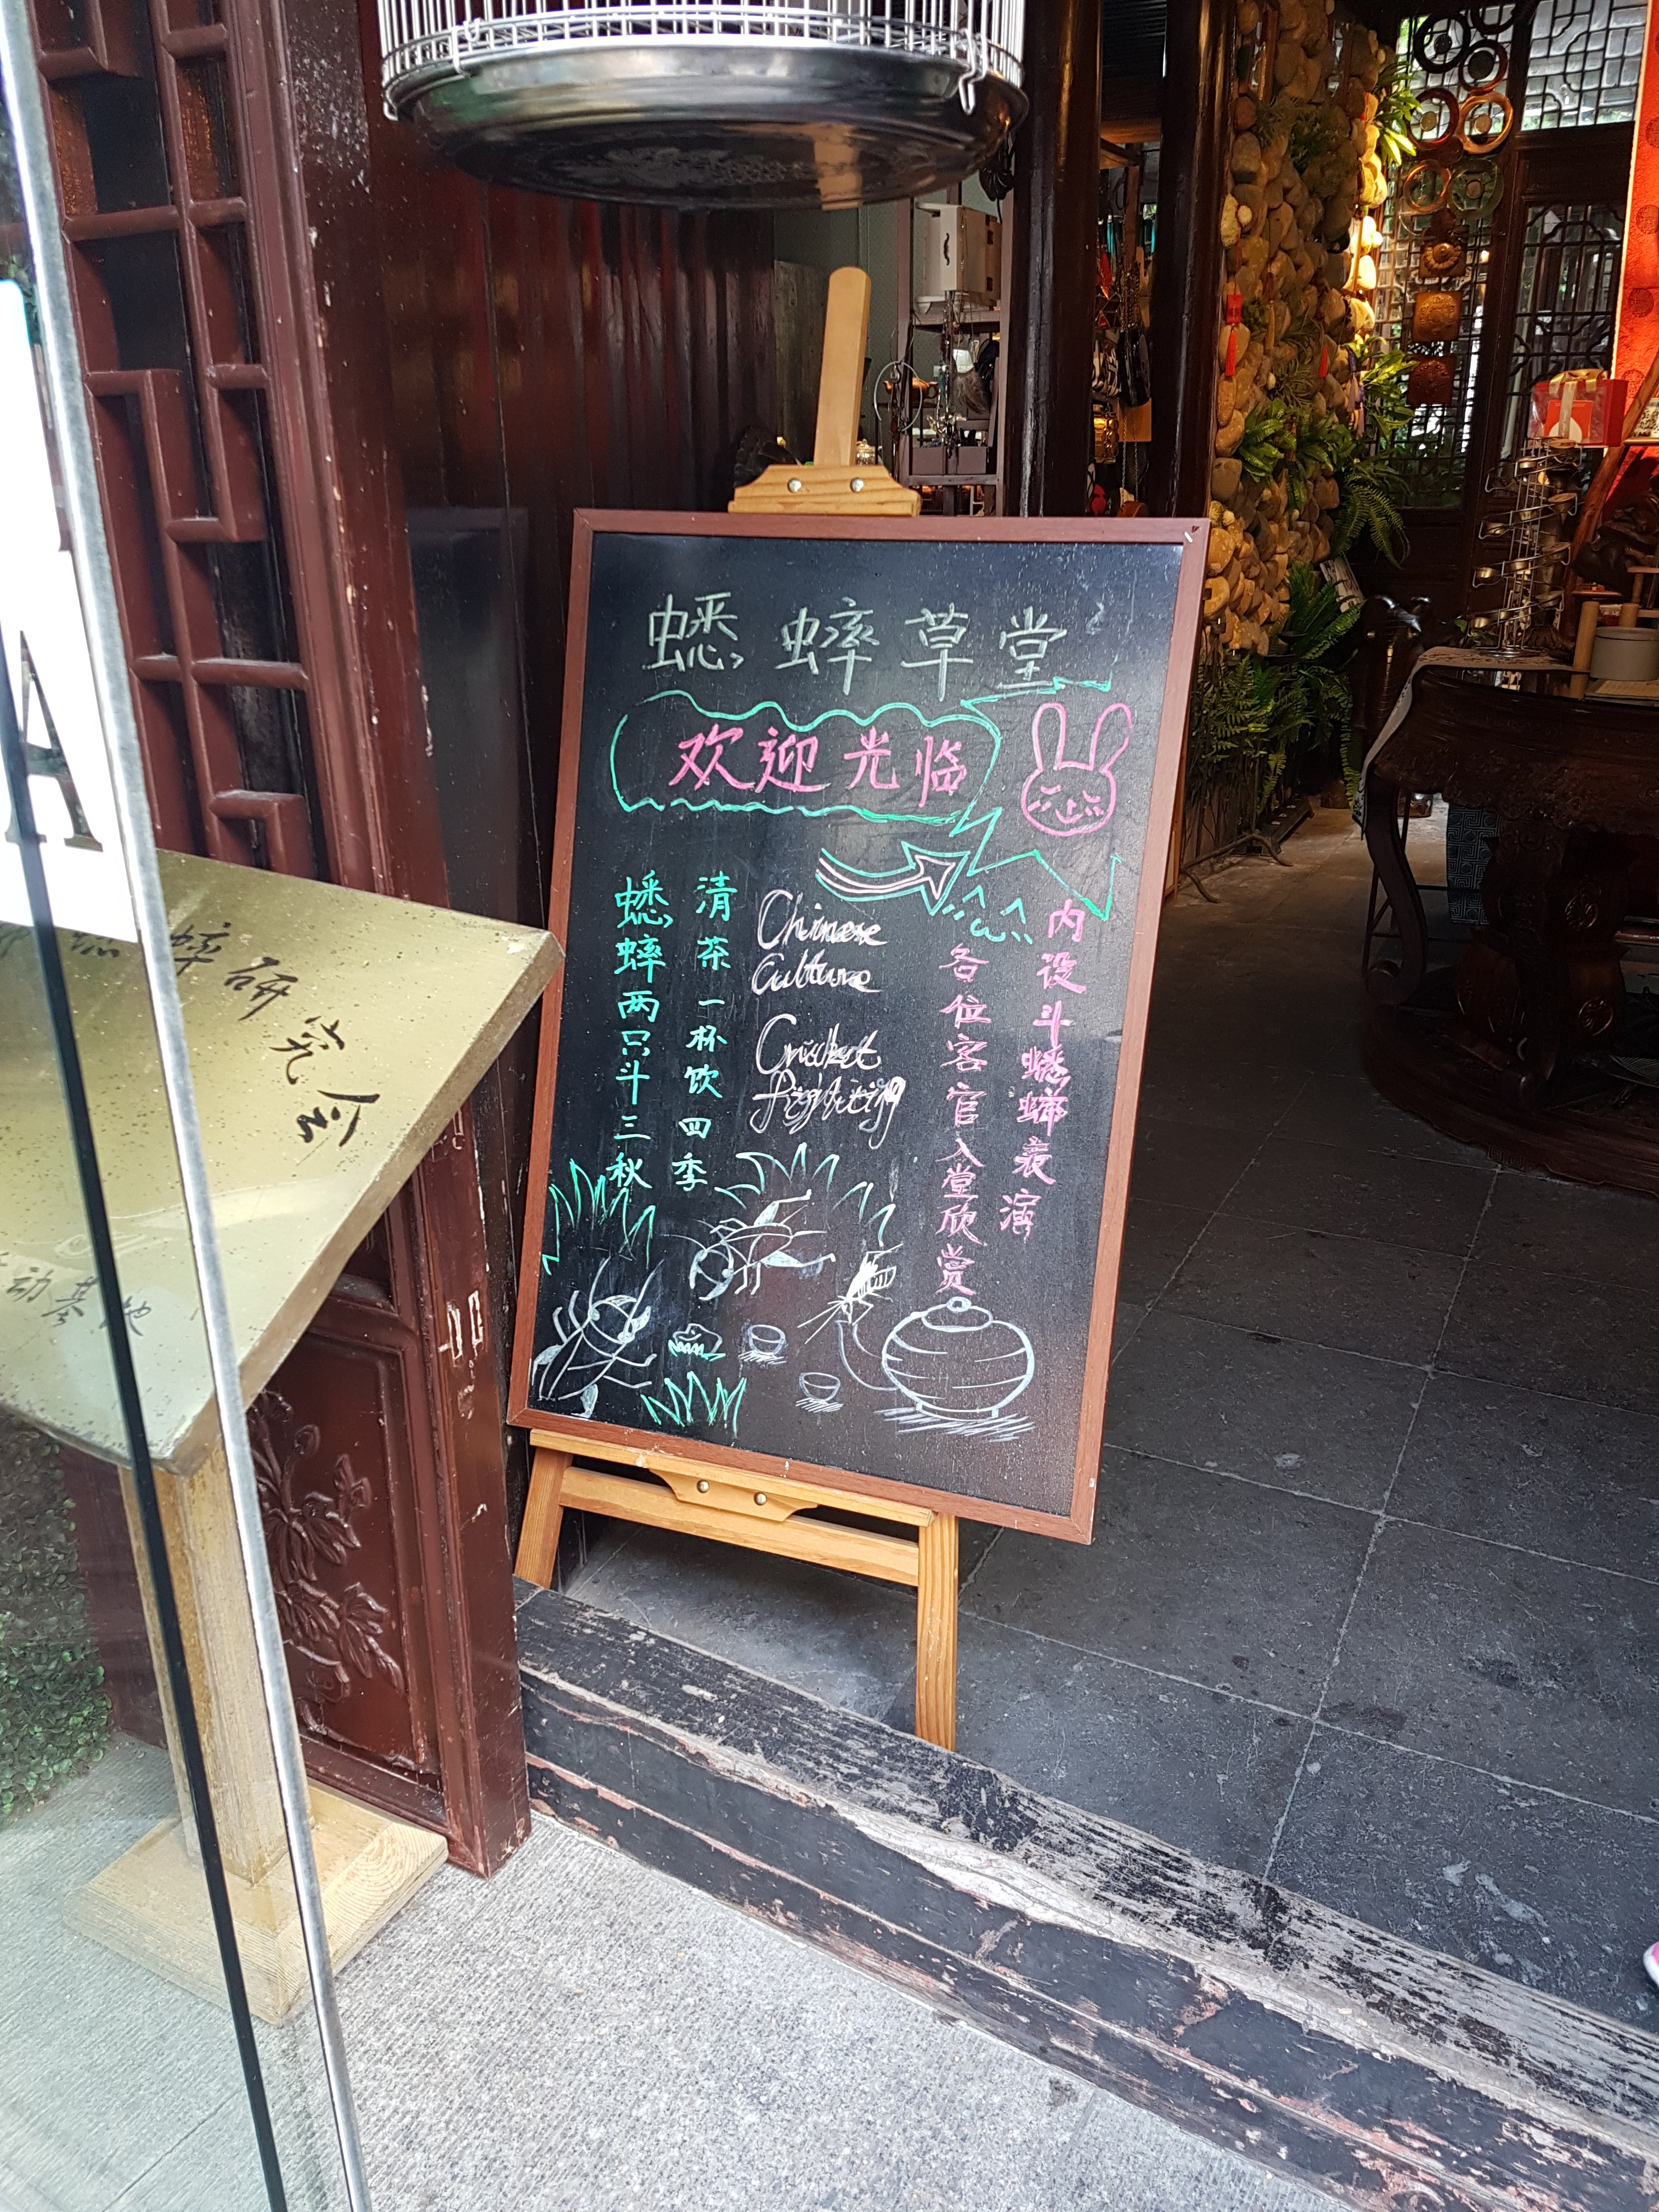 蟋蟀草堂
欢迎光临
内设斗蟋蟀表演
各位客官入堂欣赏
Chinese
Culture
Cricket
fighting
清茶一杯饮四季
蟋蟀两只斗三秋
蟀研究会
动基地
A